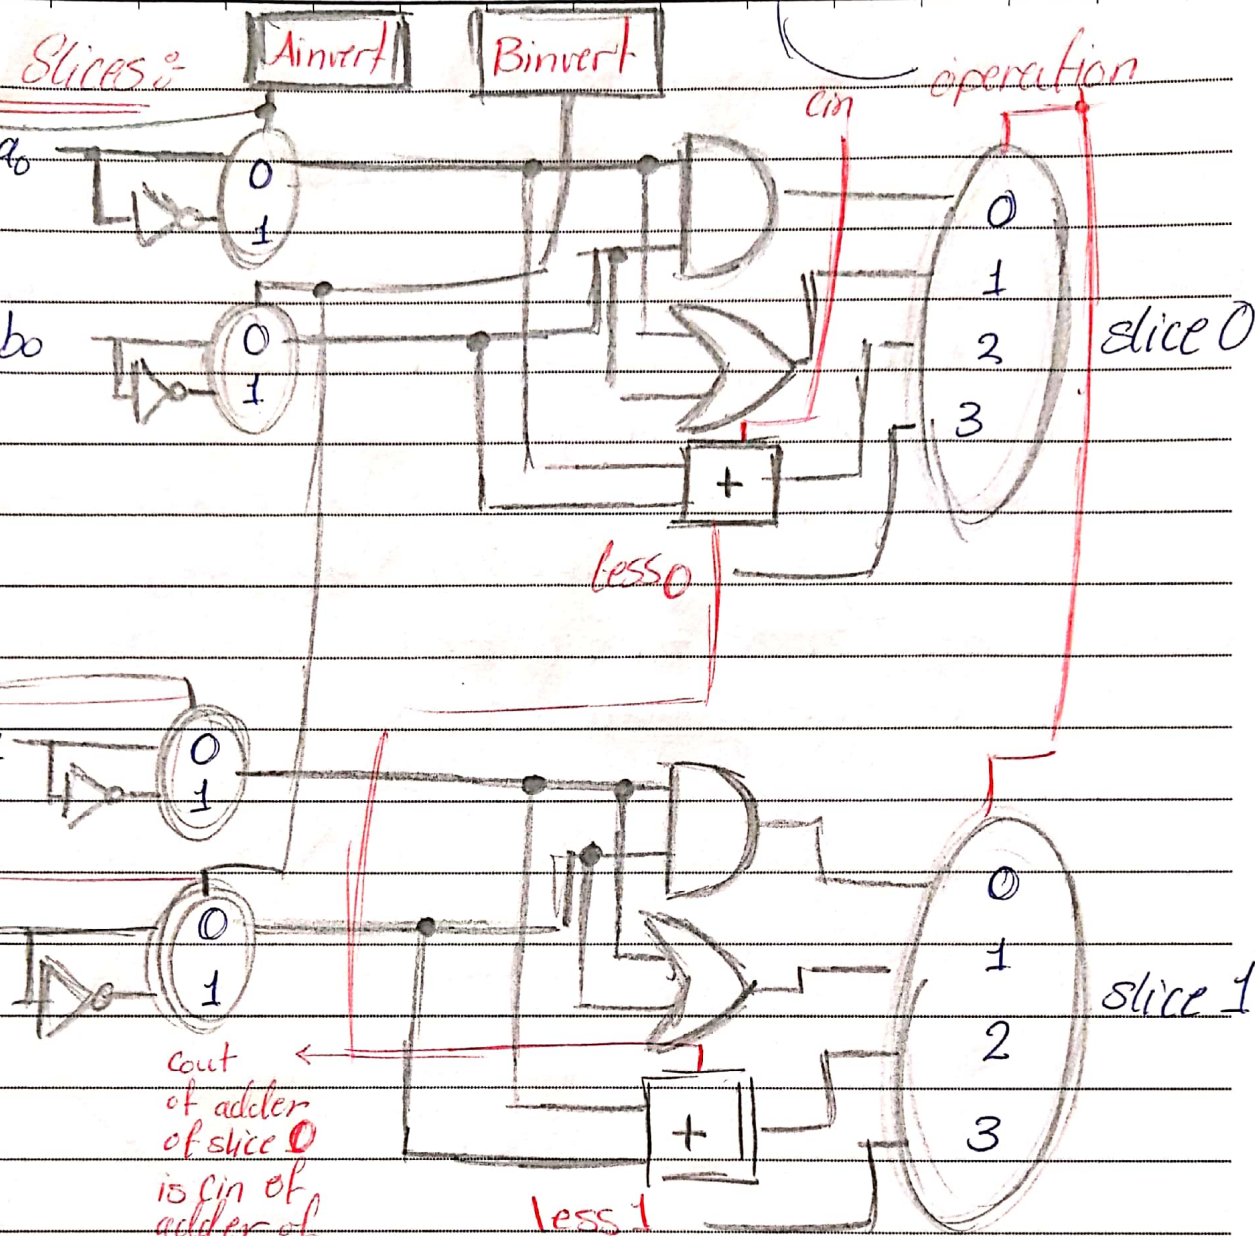 Slices:
Ainvert
Binvert
cin
operation
a0
0
1
b0
0
1
0
1
2
3
slice 0
+
less0
0
1
0
1
0
1
2
3
slice 1
+
less 1
cout
of adder
of slice 0
is cin of
adder of